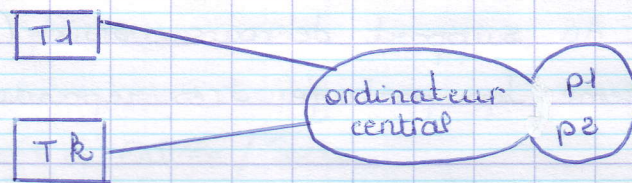 T1
ordinateur
central
p1
p2
Tk